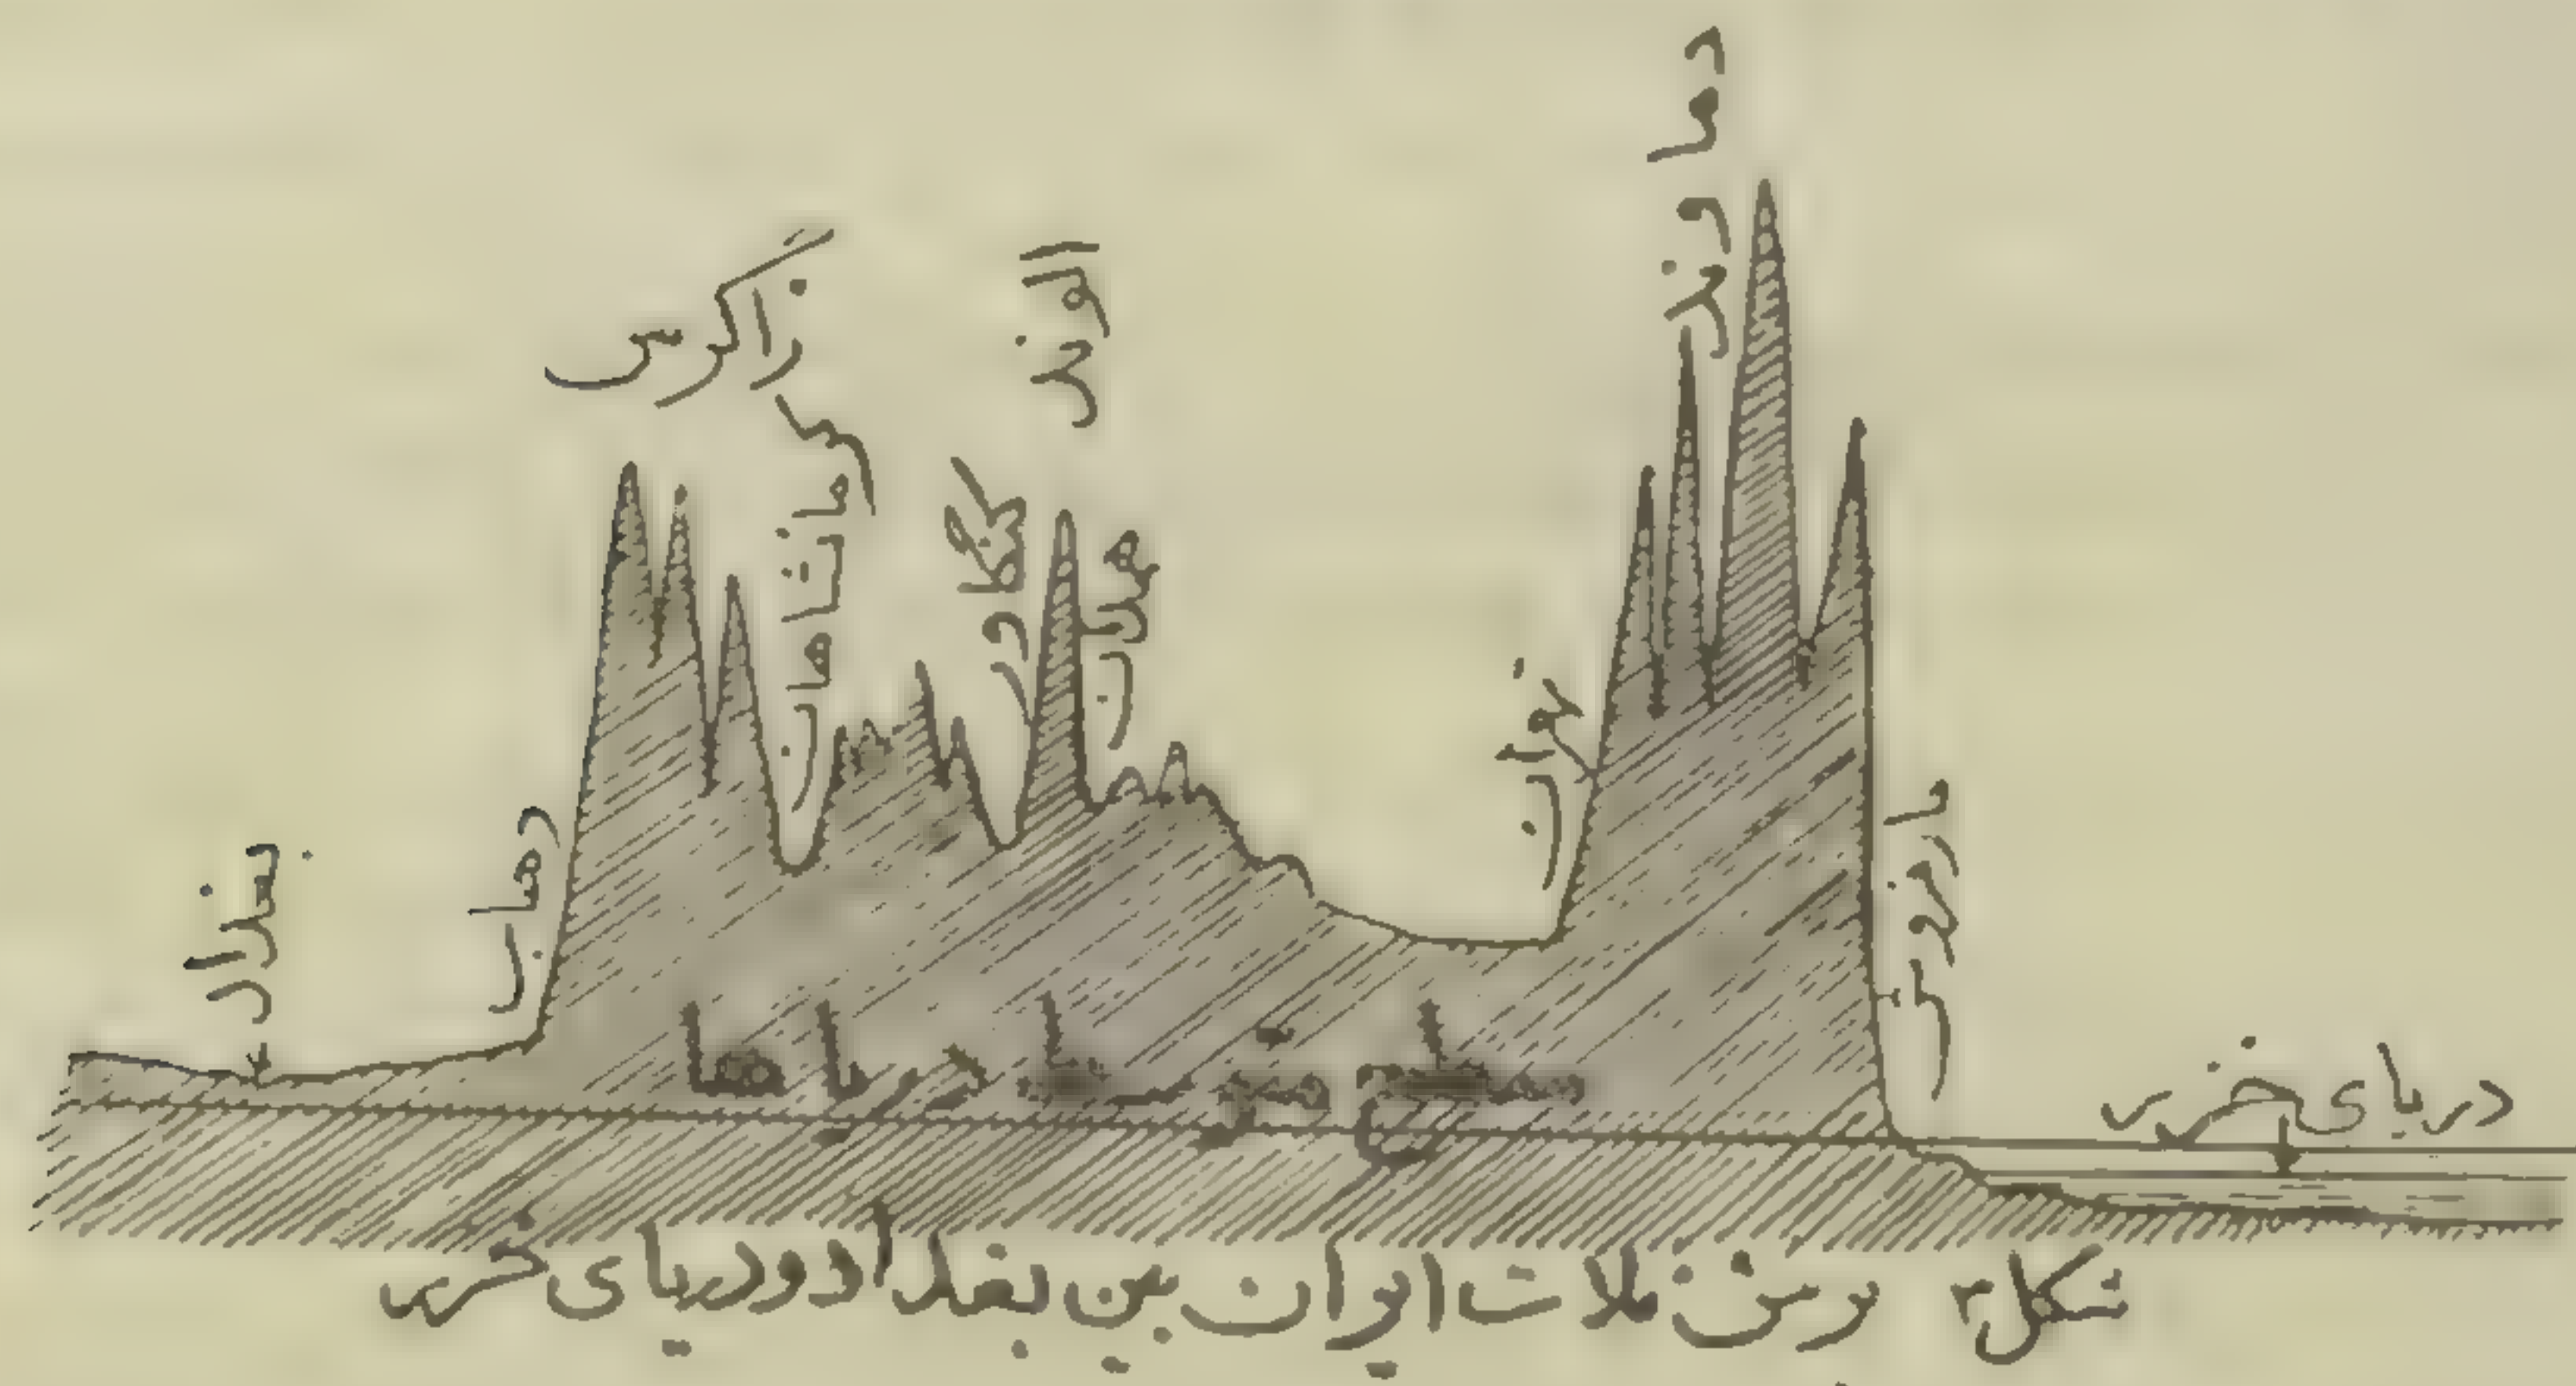 دماوند
زاگرس
الوند
کرمانشاهان
کنگاور
همدان
طهران
مازندران
ذهاب
بغداد
دریای خزر
سطح متوسط دریاها
شکل ۳ برش فلات ایران بین بغداد و دریای خزر